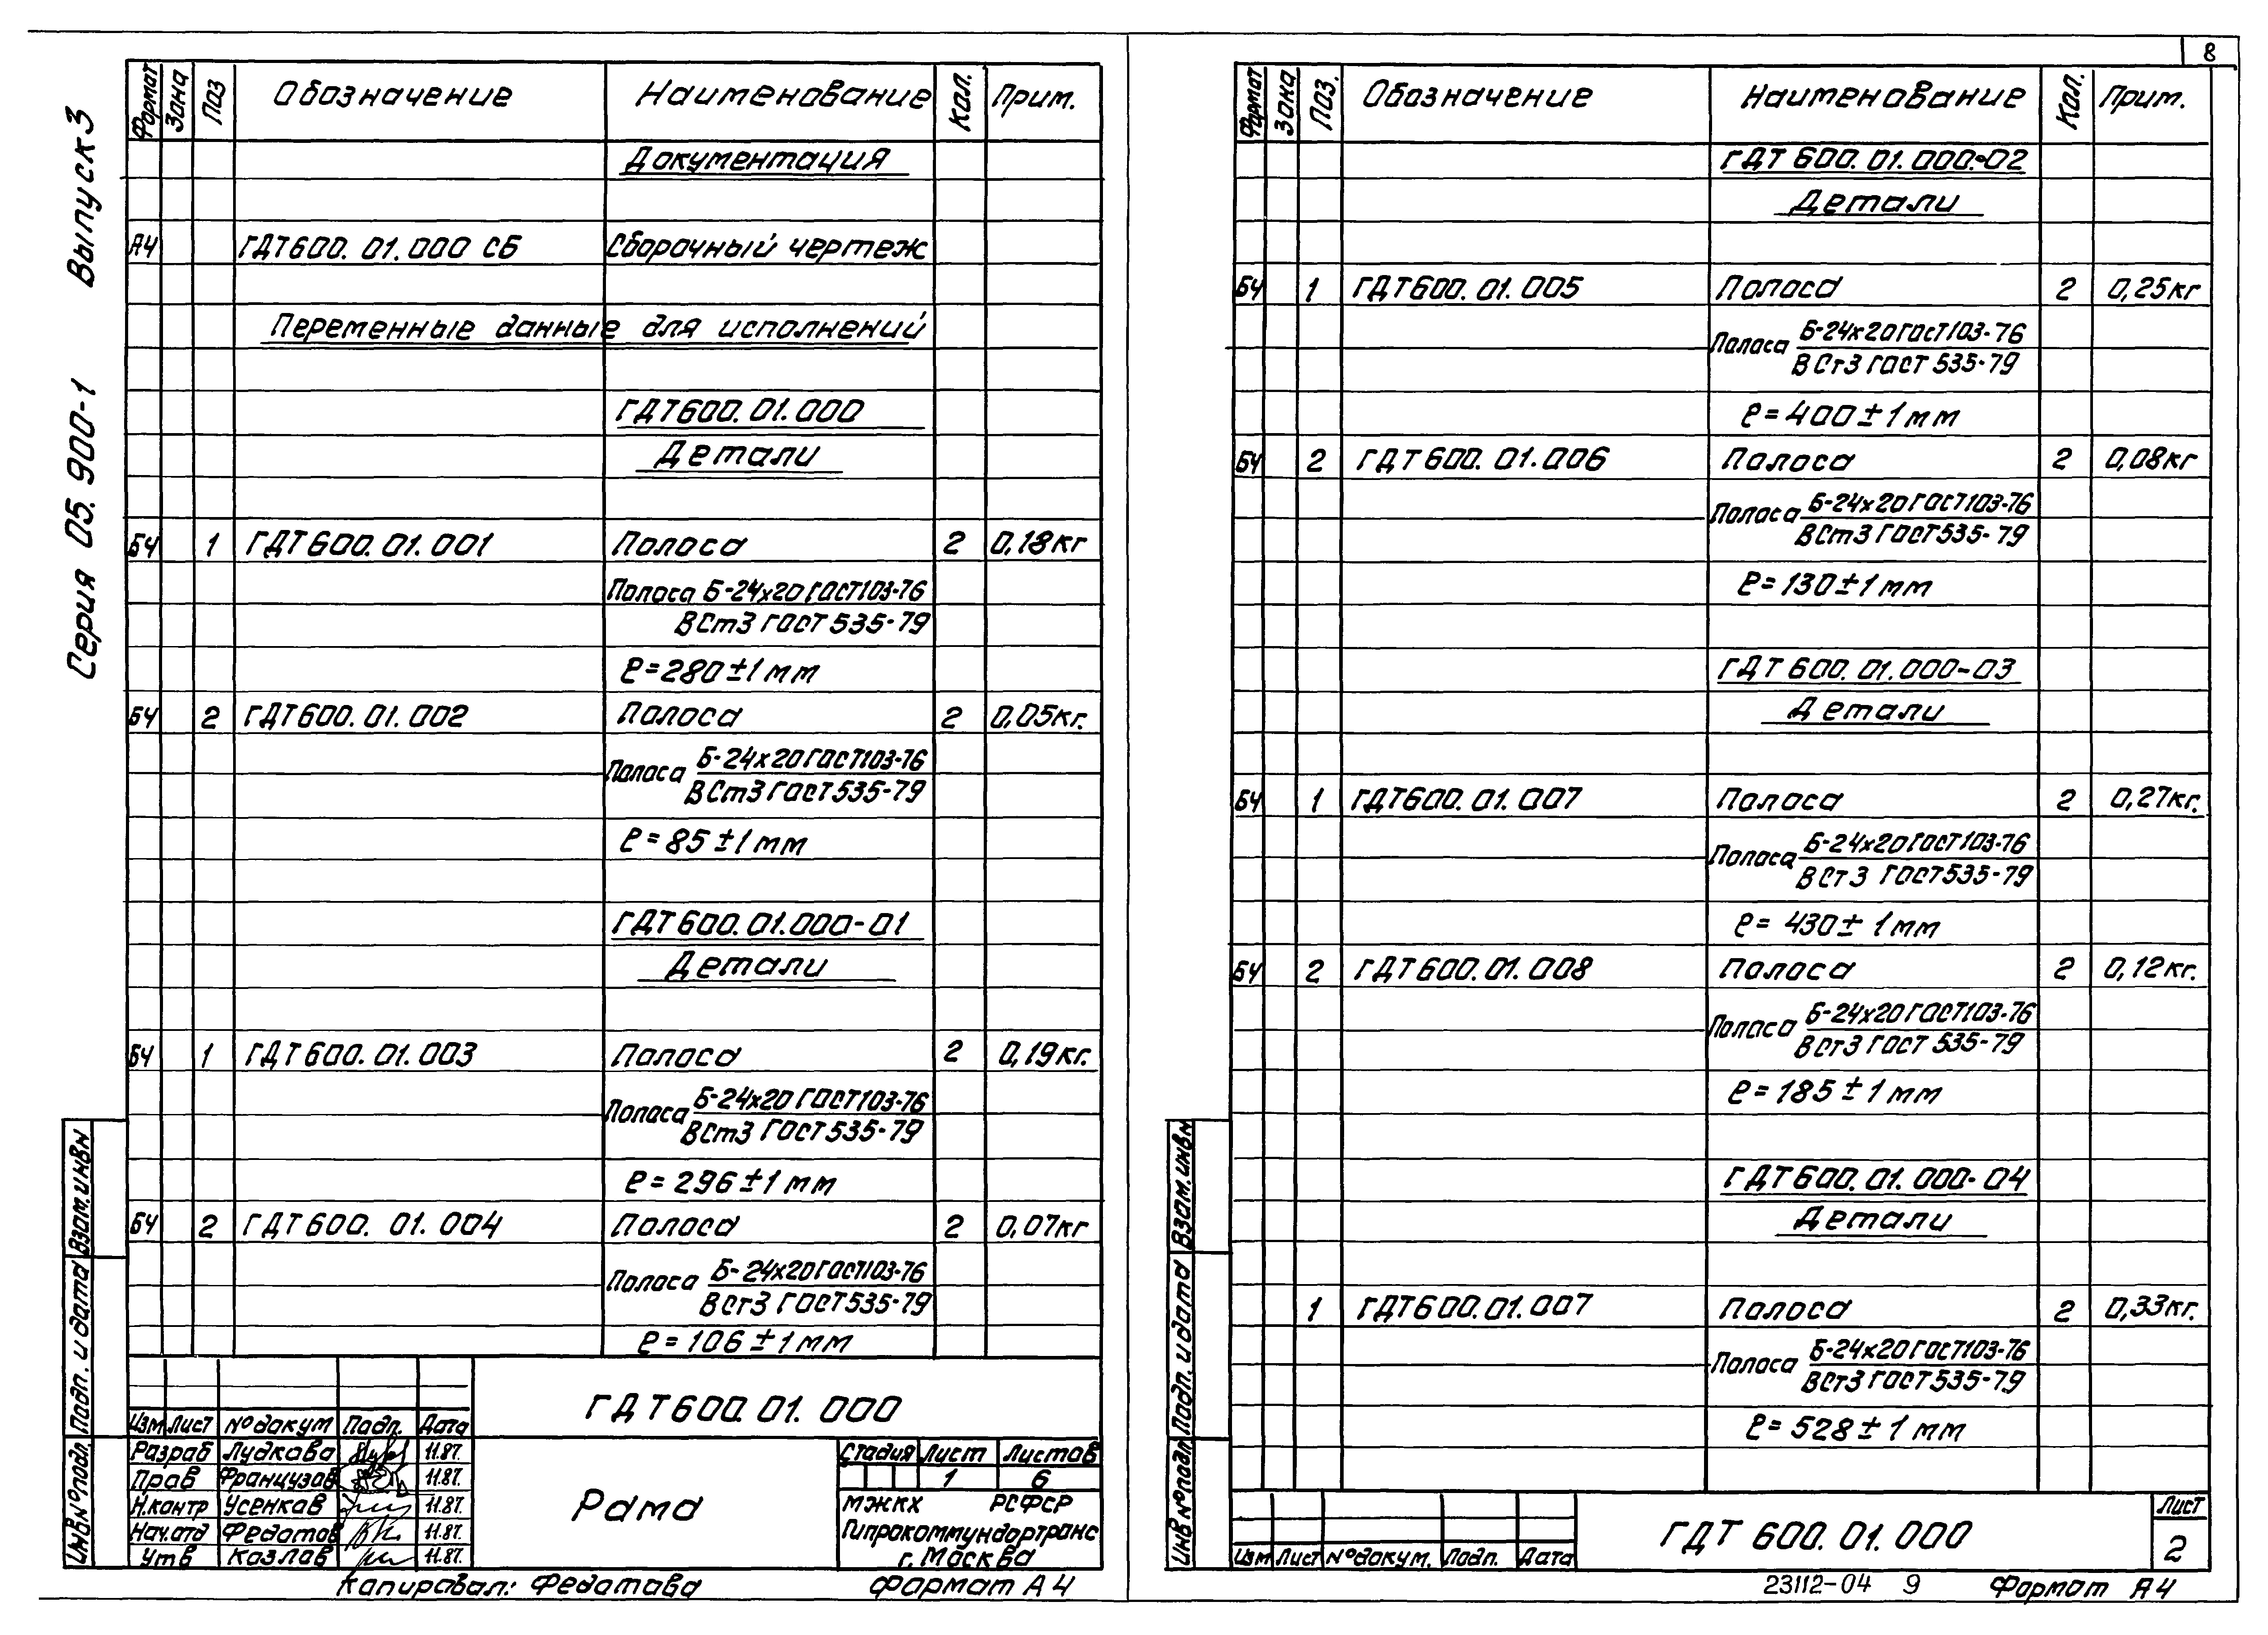 8
Серия 05.900-1 Выпуск 3
Формат Зона Поз Обозначение Наименование Кол. Прим.
Документация
А4 ГДТ600.01.000 СБ Сборочный чертеж
Переменные данные для исполнений
ГДТ600.01.000
Детали
БЧ 1 ГДТ600.01.001 Полоса 2 0,18кг
Полоса Б-24х20 ГОСТ103-76
ВСт3 ГОСТ 535-79
ℓ=280±1 мм
БЧ 2 ГДТ600.01.002 Полоса 2 0,05кг.
Полоса Б-24х20 ГОСТ103-76
ВСт3 ГОСТ 535-79
ℓ=85±1 мм
ГДТ600.01.000-01
Детали
БЧ 1 ГДТ600.01.003 Полоса 2 0,19кг.
Полоса Б-24х20 ГОСТ103-76
ВСт3 ГОСТ 535-79
ℓ=296±1 мм
БЧ 2 ГДТ600.01.004 Полоса 2 0,07кг
Полоса Б-24х20 ГОСТ103-76
ВСт3 ГОСТ 535-79
ℓ=106±1 мм
Взам.инв.N
Подп. и дата
Инв.N°подл.
ГДТ600.01.000
Изм Лист N°докум Подп. Дата
Разраб Лудкова 11.87.
Пров Французов 11.87.
Н.контр Усенков 11.87.
Нач.отд Федотов 11.87.
Утв Козлов 11.87.
Рама
Стадия Лист Листов
1 6
МЖКХ РСФСР
Гипрокоммундортранс
г. Москва
Копировал: Федотова Формат А4
Формат Зона Поз. Обозначение Наименование Кол. Прим.
ГДТ600.01.000-02
Детали
БЧ 1 ГДТ600.01.005 Полоса 2 0,25кг
Полоса Б-24х20 ГОСТ103-76
ВСт3 ГОСТ 535-79
ℓ=400±1 мм
БЧ 2 ГДТ600.01.006 Полоса 2 0,08кг
Полоса Б-24х20 ГОСТ103-76
ВСт3 ГОСТ 535-79
ℓ=130±1 мм
ГДТ600.01.000-03
Детали
БЧ 1 ГДТ600.01.007 Полоса 2 0,27кг.
Полоса Б-24х20 ГОСТ103-76
ВСт3 ГОСТ 535-79
ℓ=430±1 мм
БЧ 2 ГДТ600.01.008 Полоса 2 0,12кг.
Полоса Б-24х20 ГОСТ103-76
ВСт3 ГОСТ 535-79
ℓ=185±1 мм
ГДТ600.01.000-04
Детали
1 ГДТ600.01.007 Полоса 2 0,33кг.
Полоса Б-24х20 ГОСТ103-76
ВСт3 ГОСТ 535-79
ℓ=528±1 мм
Взам.инв.N
Подп. и дата
Инв.N°подл.
Изм Лист N°докум. Подп. Дата
ГДТ 600.01.000
Лист
2
23112-04 9 Формат А4